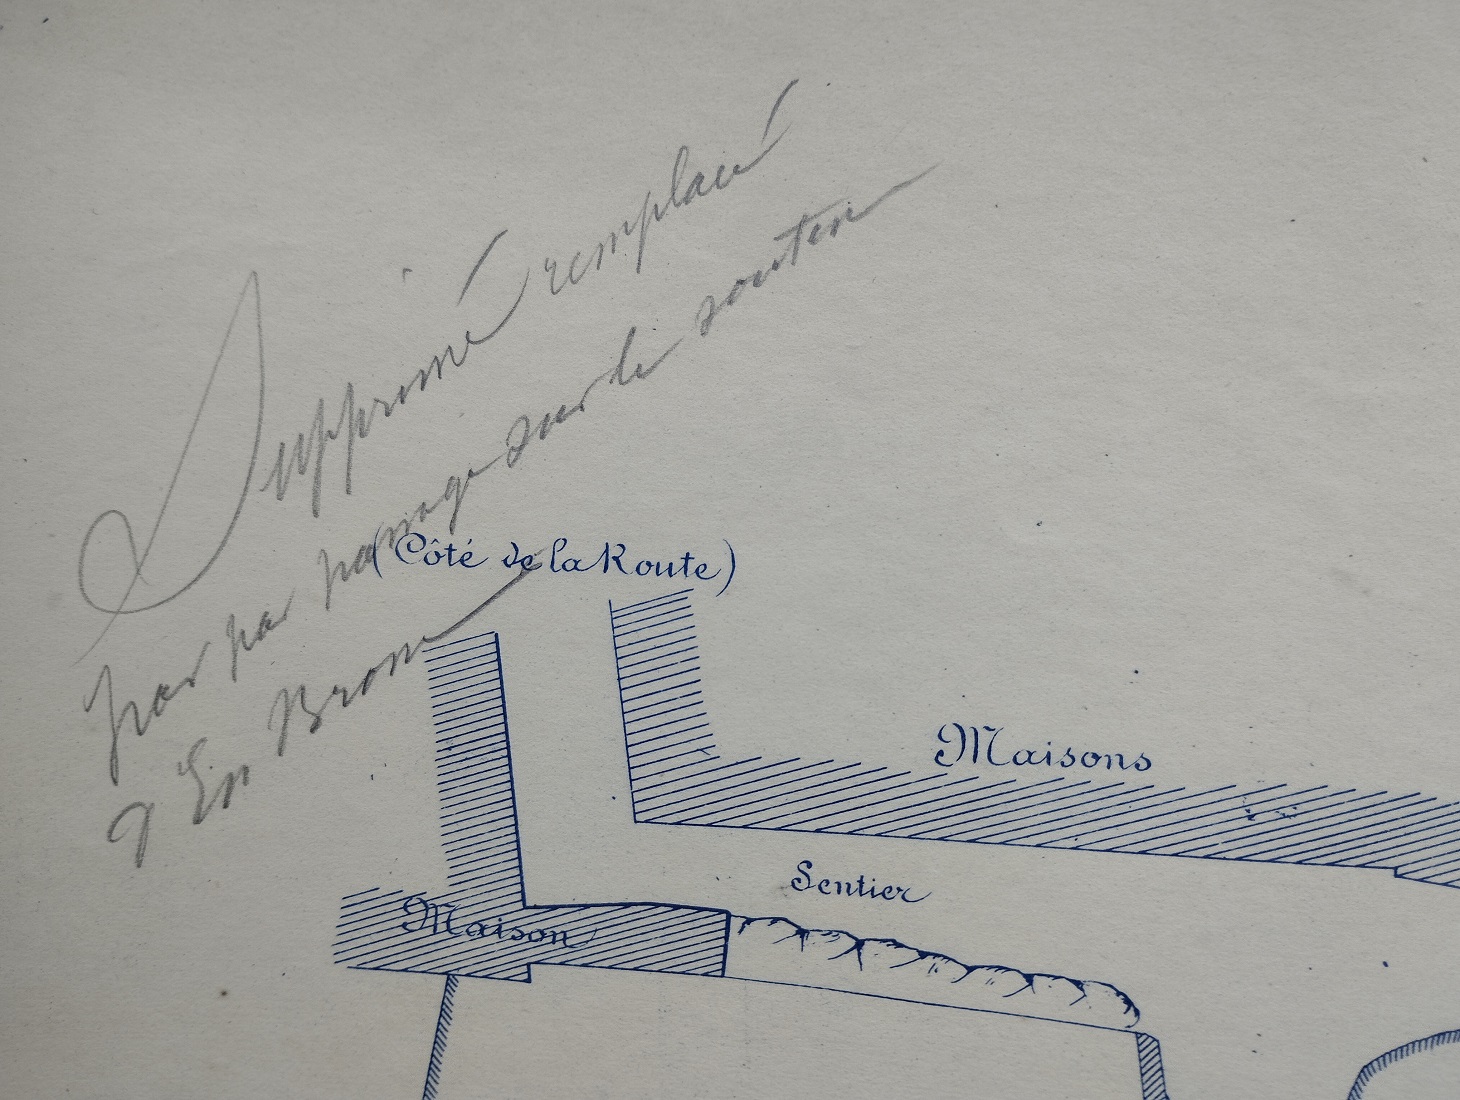 Supprimé remplacé
par par passage sur le soutien
En
(Côté de la Route)
Maisons
Sentier
Maison